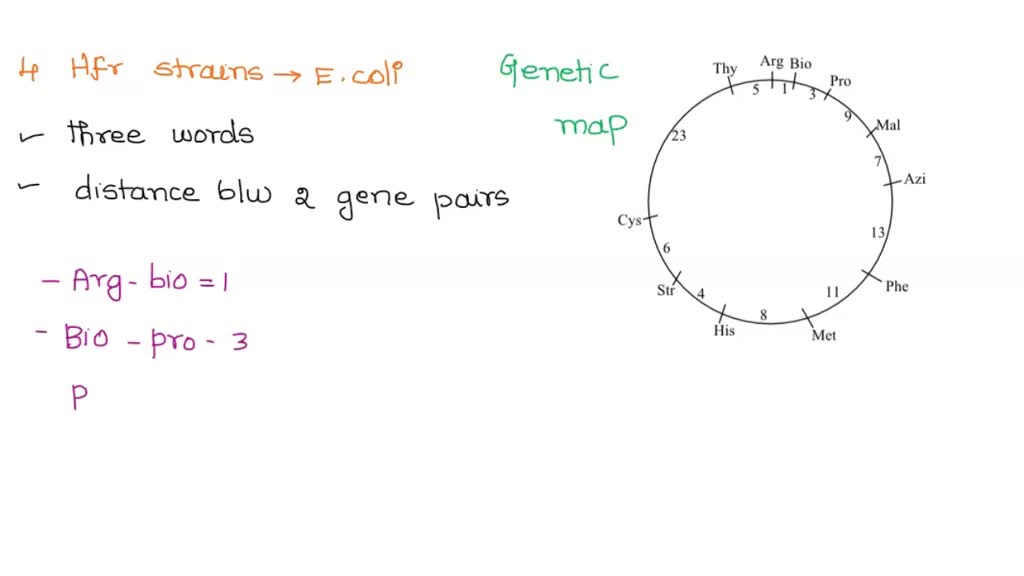 4 Hfr strains → E.coli
✓ three words
✓ distance blw 2 gene pairs
- Arg - bio = 1
- Bio - pro - 3
P
Genetic
map
Thy Arg Bio
5 1 3 Pro
9
Mal
7
Azi
13
Phe
11
Met
8
His
4
Str
6
Cys
23